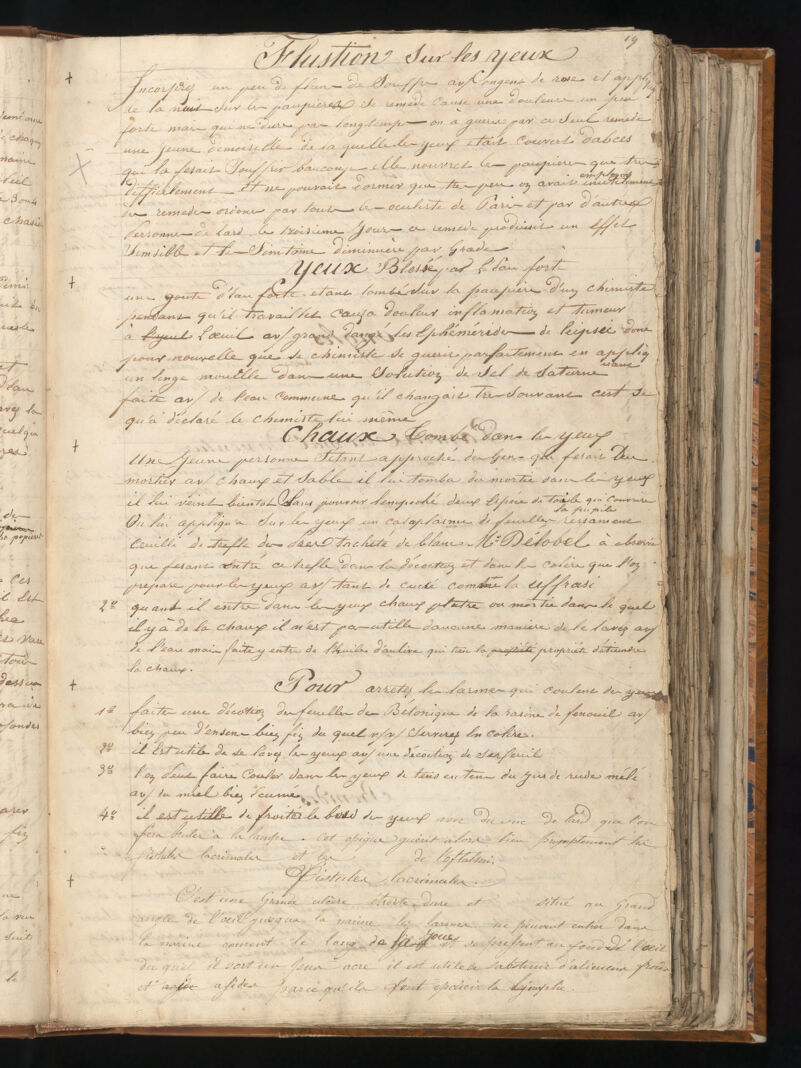 19
Flustion Sur les yeux
Incorporés un peu de fleur de Souffre av/ longens de rose et appliq
de la nuit sur les paupieres se remede cause une douleure un peu
forte mais qui ne dure pas longtemp on a guerie par ce seul remede
une jeune demoiselle de la quelle les yeux etait couvert dabces
qui la fesait Souffrir baucoup elle nouvret les paupiere que tres
difficilement et ne pouvait dormir que tres peu on avait employer inutilement
les remede ordoné par tous les oculiste de Paris et par d'autres
Personne de Lard le troisieme Jour ce remede produisit un effet
Sensible et les Simtome diminuère par Grade
yeux Blessé par L'Eau forte
une goute d'Eau forte etant tombé sur la paupière d'un chimiste
pendant qu'il travaillet causa douleur inflamation et tumeur
à L'oeuil av/ grand dangé les Ephémérides de leipsic done
pour nouvelle que se chimiste se guerie parfaitement en appliq
un linge mouillé dans une Solution de Sel de Saturne
faite av/ de l'eau commune qu'il changait tres Souvant cest se
qu'a déclaré le chimiste lui même
Chaux Tombé dans les yeux
Une Jeune personne setant approché des gens qui fesait Du
mortier av/ chaux et Sable il lui tomba du mortier dans les yeux
il lui veint bientot Sans pouvoir lempeché deux Espèce de toile qui couvrire
la pupile
On lui appliqua sur les yeux un cataplasme de feuilles recement
ceuille de trefle des Prés tacheté de blanc Mr Délobel à observé
que fesant entré ce trefle dans la décoction et dans le colire que l'on
prepare pour les yeux av/ tant de succé comme la Euffrasi
2º quant il entre dans les yeux chaux platre ou mortier dans le quel
il y à de la chaux il n'est pas utille daucune manière de le laver av/
de l'eau mais faite y entré de l'huile d'aulive qui tien la propriété propriété déteindre
la chaux.
Pour arretés les larmes qui coulent des yeux
1º faite une décotion de feuilles de Bétonique de la rasine de fenouil av/
bien peu d'ensens bien fin du quel v/s servires En colire.
2º il Est utile de se laver les yeux av/ une décoction de Serfeuil
3º l'on peut faire Couler dans les yeux de tems en tems du jus de rude mélé
av/ du miel bien écumé
4º il est utille de froitér le bord des yeux avec du suc de lard que l'on
fera bruler à la lampe. Cet
fistules lacrimales et
Fistules lacrimales
C'est une Grande ulcère étroite dure et situé au Grand
angle de l'oeil jusqua la narine les larmes ne peuvent entrer dans
la narine coulent le long de la Joue
du quel il sort un Jeux acre il est utile de sabstenir d'alimens froids
et acides parce qu'ils font epaicir la lymphe.